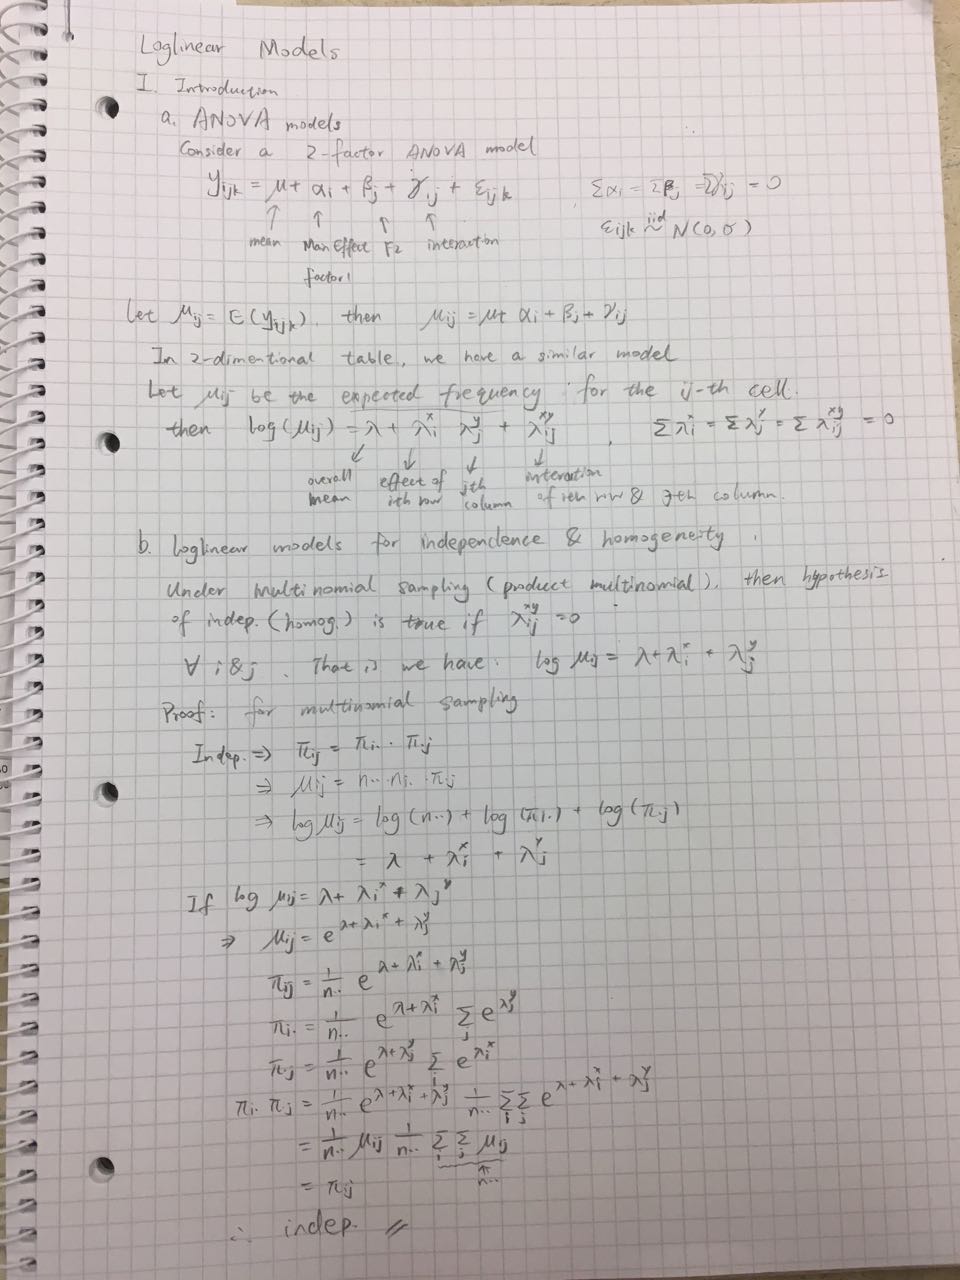 Loglinear Models
I. Introduction
a. ANOVA models
Consider a 2-factor ANOVA model
y_ijk = μ + α_i + β_j + γ_ij + ε_ijk    Σα_i = Σβ_j = Σγ_ij = 0
↑ ↑ ↑ ↑    ε_ijk iid~ N(0, σ)
mean Man Effect F2 interaction
factor 1
Let μ_ij = E(y_ijk), then μ_ij = μ + α_i + β_j + γ_ij
In 2-dimentional table, we have a similar model
Let μ_ij be the expected frequency for the ij-th cell.
then log(μ_ij) = λ + λ_i^x λ_j^y + λ_ij^xy , Σλ_i^x = Σλ_j^y = Σλ_ij^xy = 0
↙ ↓ ↓ ↓
overall effect of jth interaction
mean ith row column of ith row & jth column.
b. loglinear models for independence & homogeneity.
Under multinomial sampling (product multinomial), then hypothesis
of indep. (homog.) is true if λ_ij^xy = 0
∀ i & j. That is we have: log μ_ij = λ + λ_i^x + λ_j^y
Proof: for multinomial sampling
Indep. ⇒ π_ij = π_i. · π_.j
⇒ μ_ij = n.. n_i. · π_.j
⇒ log μ_ij = log(n..) + log(π_i.) + log(π_.j)
= λ + λ_i^x + λ_j^y
If log μ_ij = λ + λ_i^x + λ_j^y
⇒ μ_ij = e^(λ + λ_i^x + λ_j^y)
π_ij = 1/n.. e^(λ + λ_i^x + λ_j^y)
π_i. = 1/n.. e^(λ + λ_i^x) Σ_j e^(λ_j^y)
π_.j = 1/n.. e^(λ + λ_j^y) Σ_i e^(λ_i^x)
π_i. π_.j = 1/n.. e^(λ + λ_i^x + λ_j^y) 1/n.. Σ_i Σ_j e^(λ + λ_i^x + λ_j^y)
= 1/n.. μ_ij 1/n.. Σ_i Σ_j μ_ij
↑
n..
= π_ij
∴ indep. //